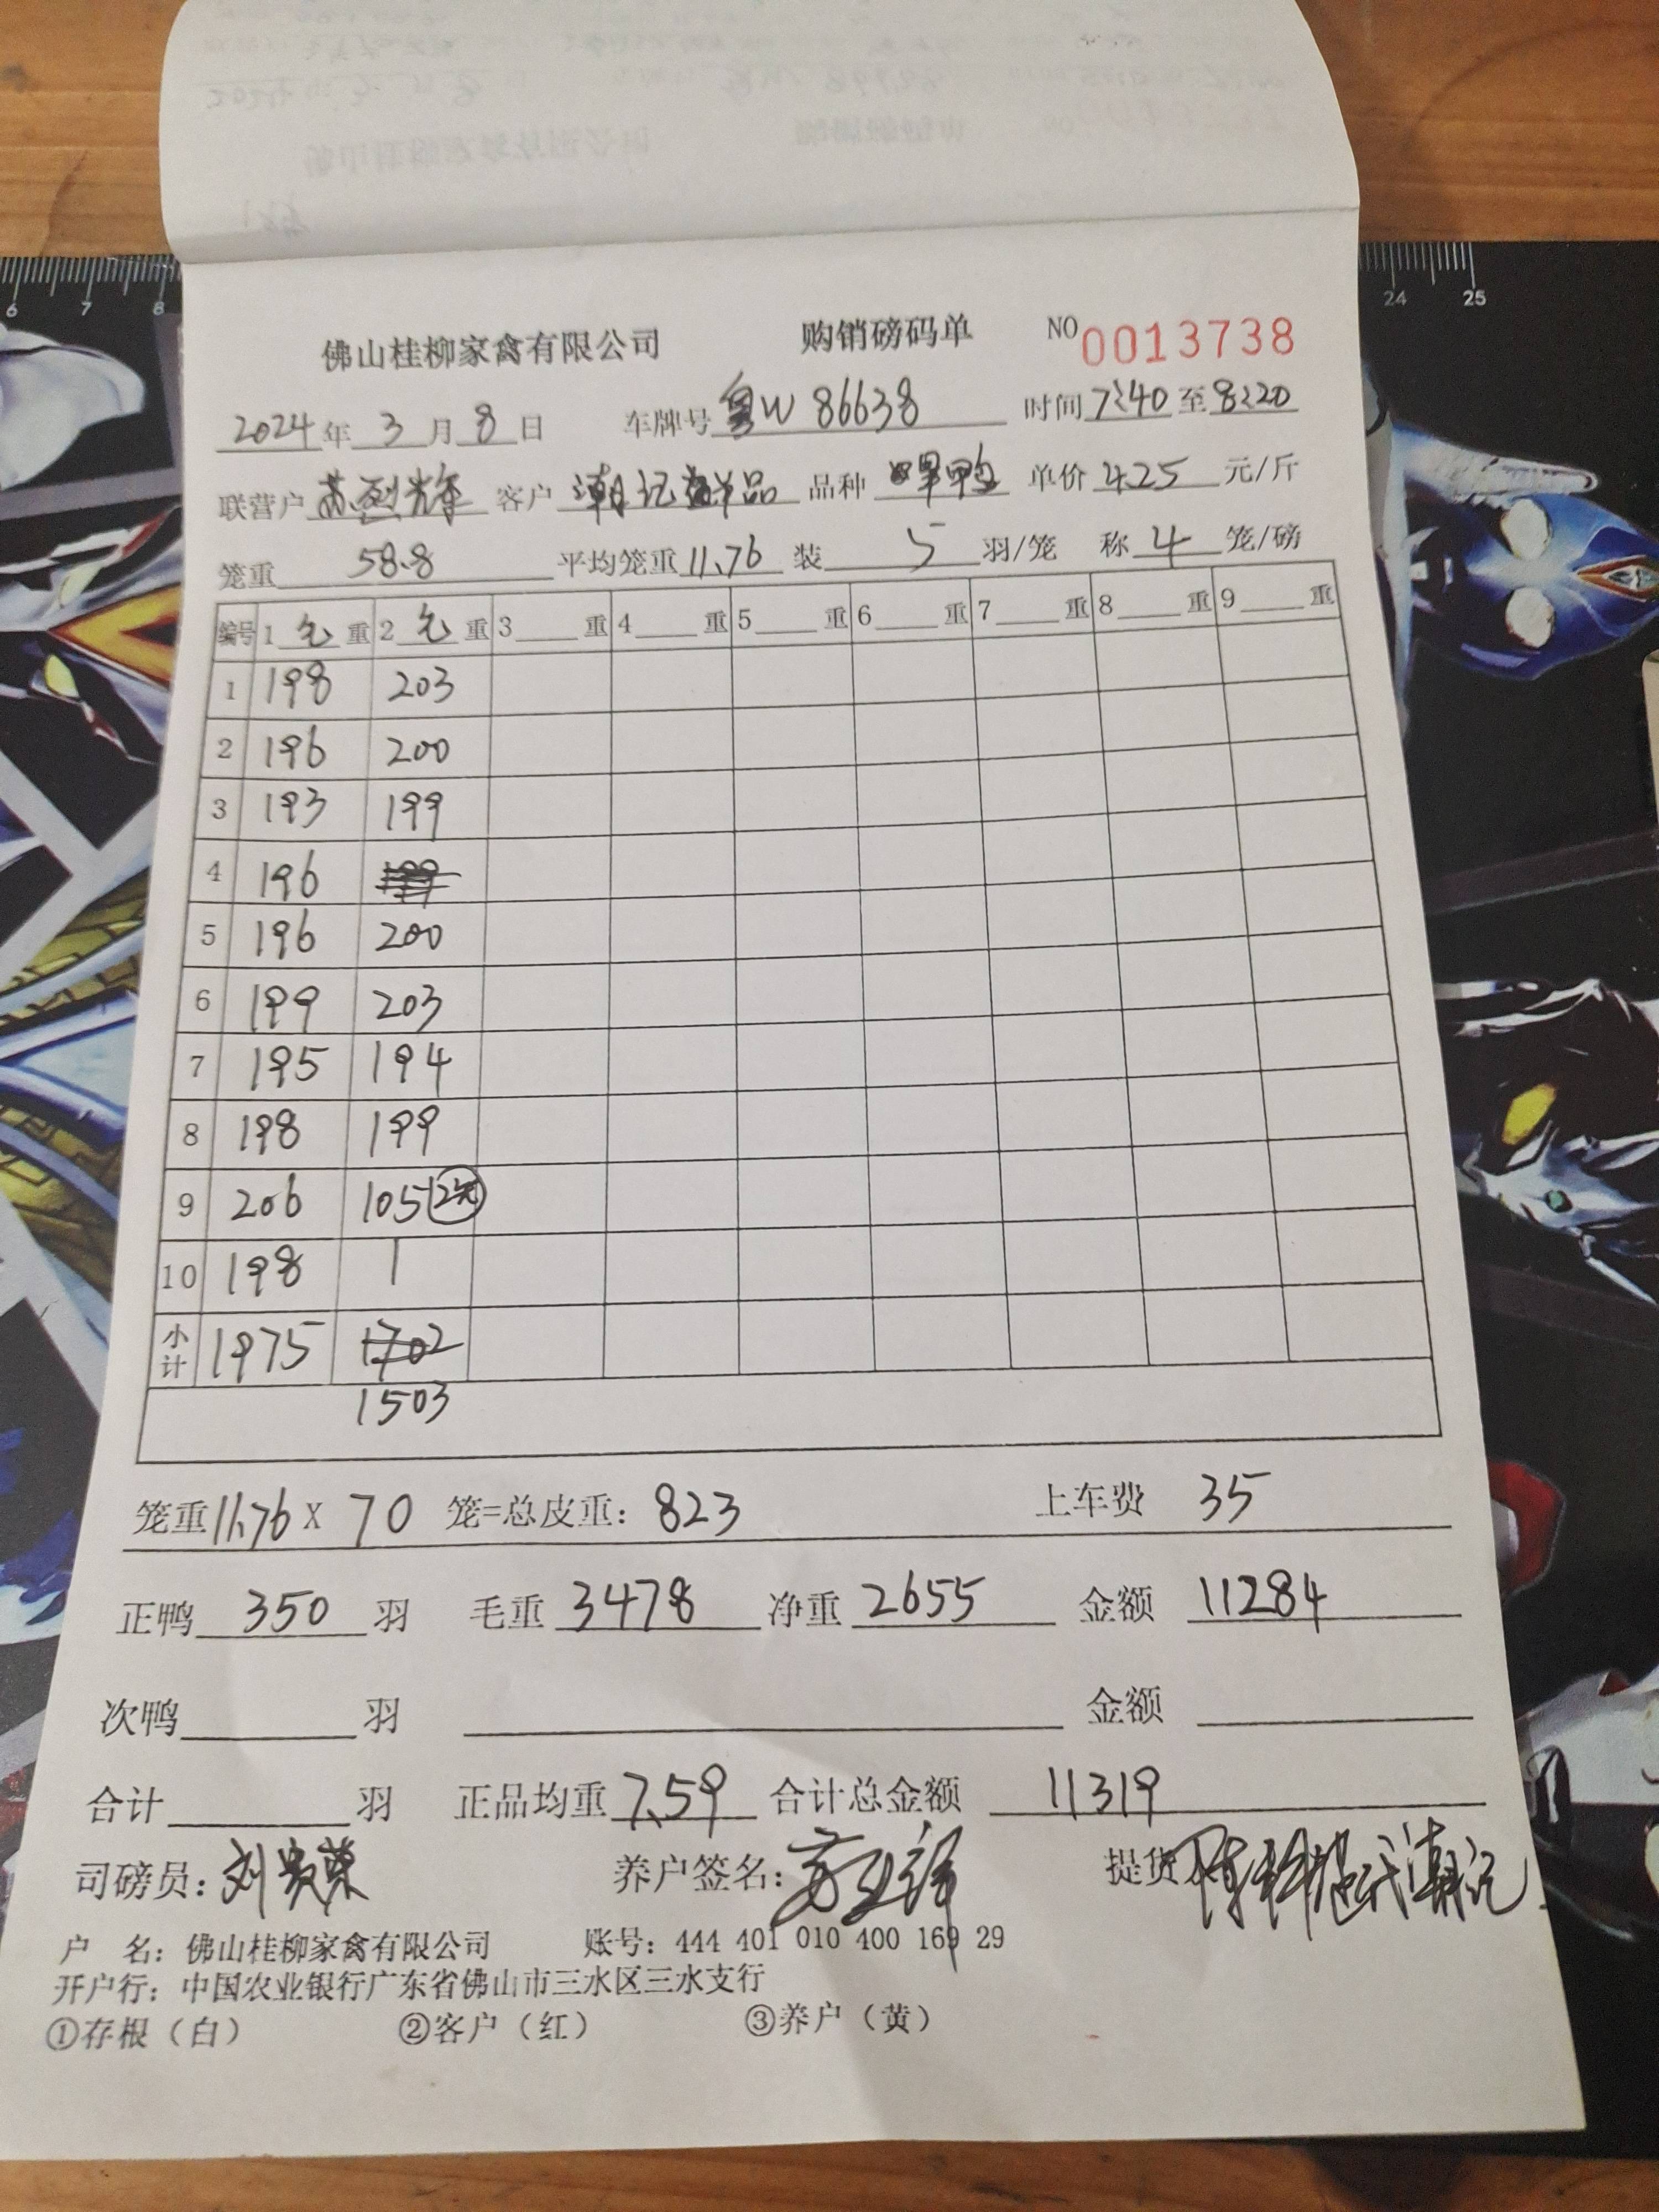 佛山桂柳家禽有限公司 购销磅码单 NO 0013738
2024年3月8日 车牌号粤W 86638 时间7:40至8:20
联营户苏烈辉 客户潮记 品品种 单价4.25元/斤
笼重58.8 平均笼重11.76 装5羽/笼 称4笼/磅
编号 1毛重 2毛重 3重 4重 5重 6重 7重 8重 9重
1 198 203
2 196 200
3 193 199
4 196 199
5 196 200
6 199 203
7 195 194
8 198 199
9 206 105 2笼
10 198 1
小计 1975 1702
1503
笼重11.76 X 70 笼=总皮重: 823 上车费 35
正鸭350羽 毛重3478 净重2655 金额11284
次鸭 羽 金额
合计 羽 正品均重7.59 合计总金额 11319
司磅员: 养户签名: 提货人
户 名: 佛山桂柳家禽有限公司 账号: 444 401 010 400 169 29
开户行: 中国农业银行广东省佛山市三水区三水支行
①存根（白） ②客户（红） ③养户（黄）